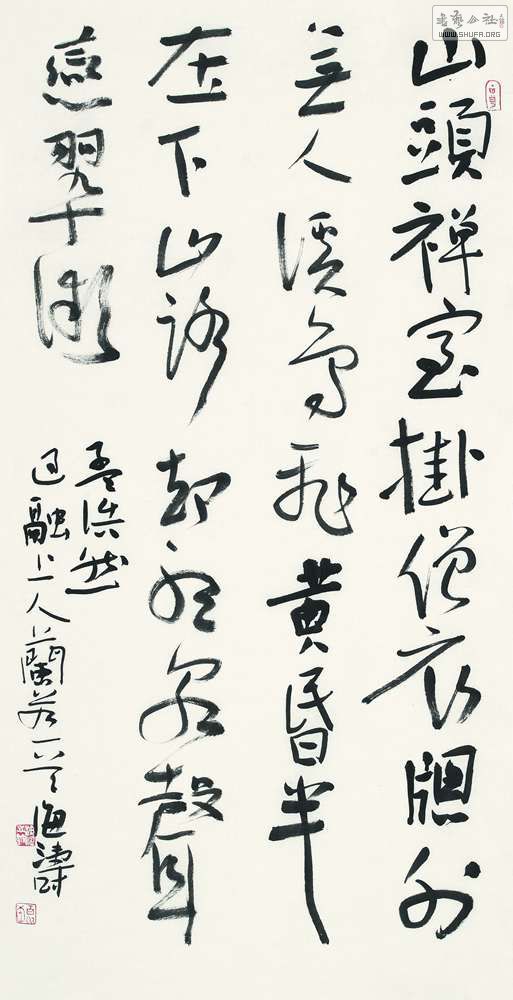 書藝公社
WWW.SHUFA.ORG
山頭禅室掛僧衣窗外
無人溪鳥飛黄昏半
在下山路却聽泉聲
戀翠微
孟浩然
過融上人蘭若一首 海濤